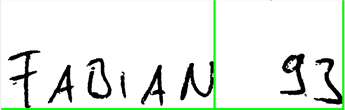 FABIAN 93